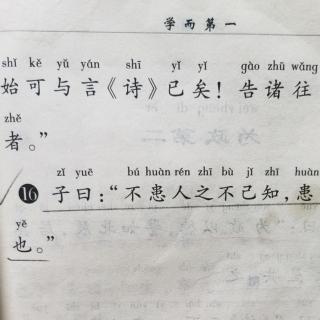 学而第一
shǐ kě yǔ yán shī yǐ yǐ gào zhū wǎng
始可与言《诗》已矣！告诸往
zhě
者。”
zǐ yuē bú huàn rén zhī bù jǐ zhī huàn
16 子曰：“不患人之不己知，患
yě
也。”